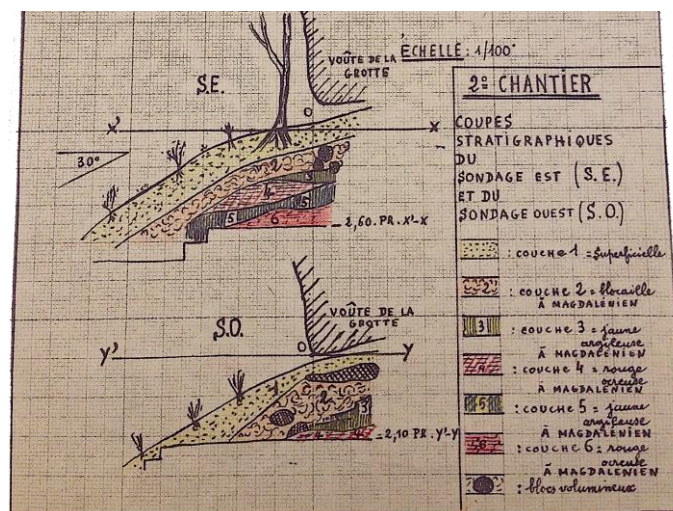 ÉCHELLE: 1/100°
VOÛTE DE LA
GROTTE
S.E.
O
X'
X
30°
2
3
4
5
5
6
2,60.PR.X'-X
VOÛTE DE LA
GROTTE
S.O.
O
Y'
Y
1
2
3
4
2,10 PR.Y'-Y
2e CHANTIER
COUPES
STRATIGRAPHIQUES
DU
SONDAGE EST (S.E.)
ET DU
SONDAGE OUEST (S.O.)
: COUCHE 1 = Superficielle
2 : COUCHE 2 = blocaille
À MAGDALÉNIEN
3 : COUCHE 3 = jaune
argileuse
À MAGDALÉNIEN
4 : COUCHE 4 = rouge
ocreuse
À MAGDALÉNIEN
5 : COUCHE 5 = jaune
argileuse
À MAGDALÉNIEN
6 : COUCHE 6 = rouge
ocreuse
À MAGDALÉNIEN
: blocs volumineux